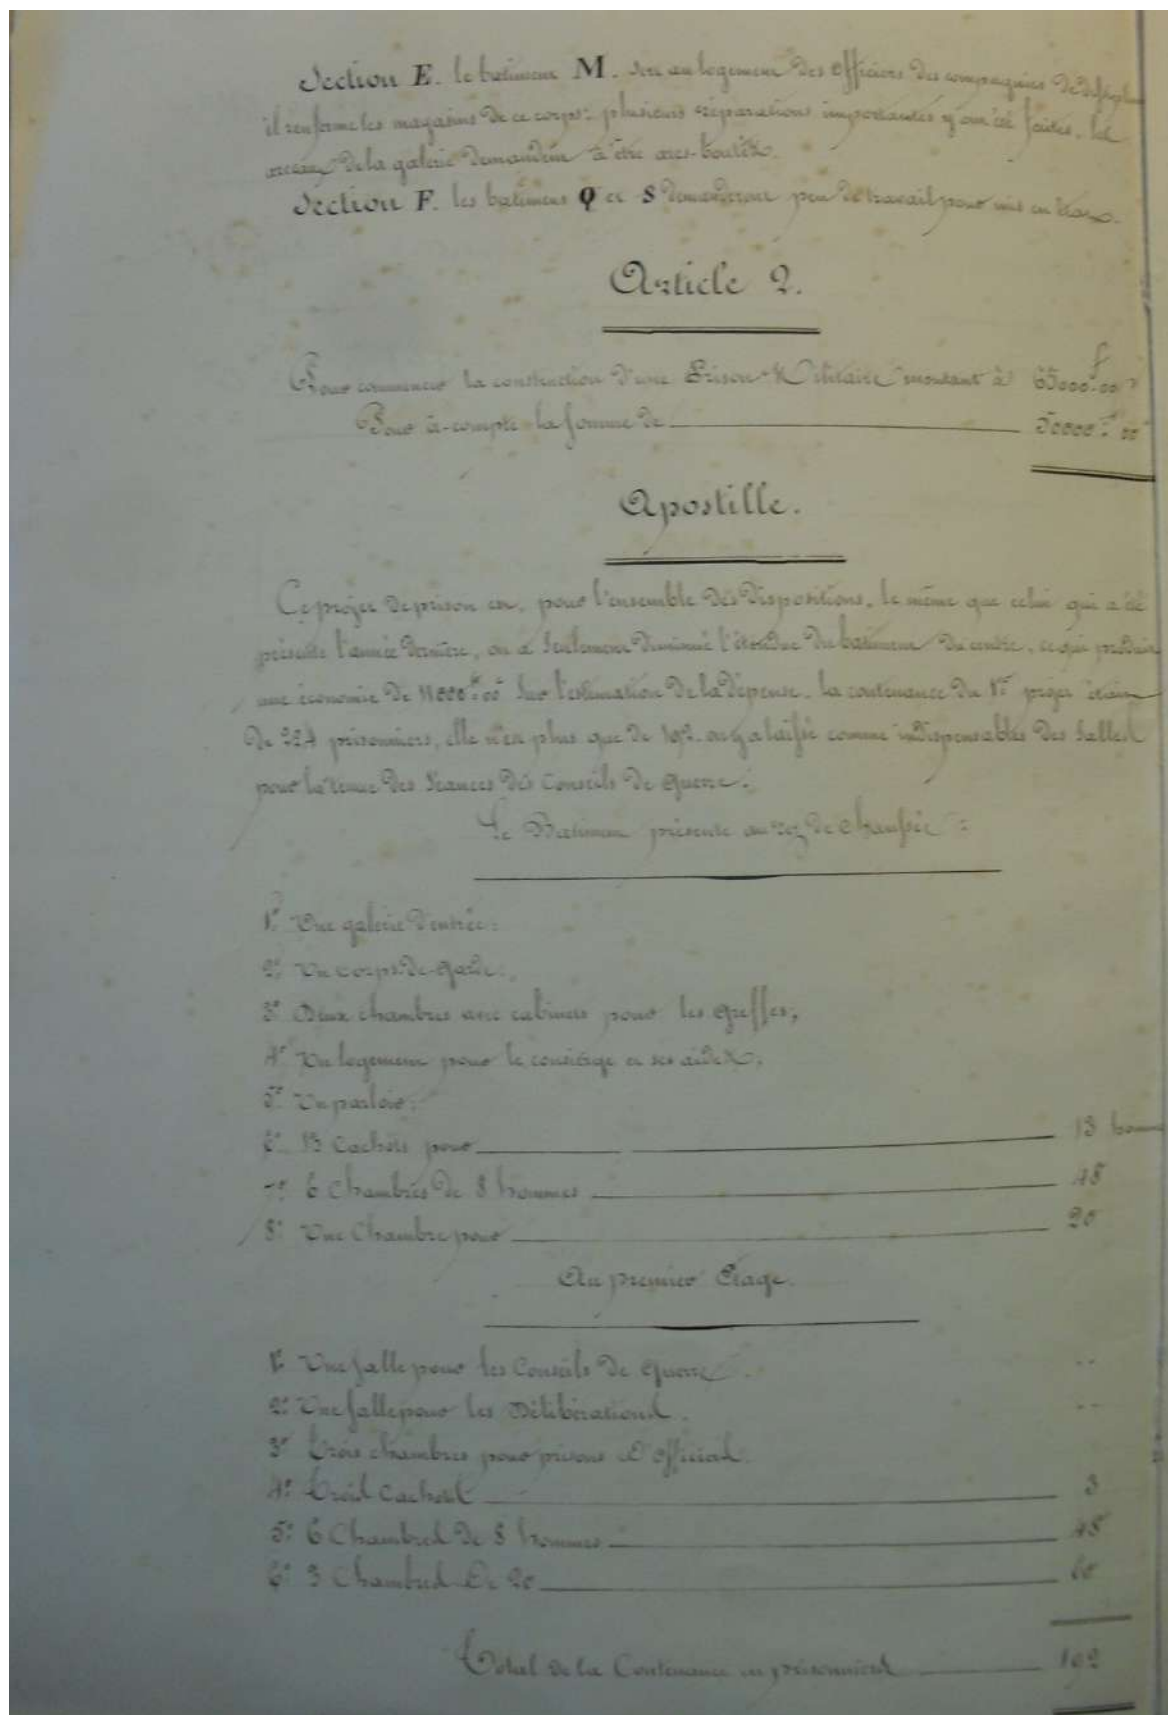 Section E. le batiment M. sert au logement des officiers des compagnies de
il renferme les magasins de ce corps: plusieurs réparations importantes y ont été faites. les
arceaux de la galerie demandent à être arcs-boutés.
Section F. les batimens Q et S demanderont peu de travail pour mis en état.
Article 2.
Pour commencer la construction d'une Prison Militaire montant à 65000.00
Pour à-compte la somme de 50000.00
Apostille.
Ce projet de prison est, pour l'ensemble des dispositions, le même que celui qui a été
présenté l'année dernière, on a seulement diminué l'étendue du batiment du centre, ce qui produit
une économie de 11000f 00c sur l'estimation de la dépense. la contenance du 1er projet était
de 224 prisonniers, elle n'est plus que de 192. on y a laissé comme indispensables des salles
pour la tenue des séances des Conseils de Guerre.
Le Batiment présente au rez de chaussée:
1° Une galerie d'entrée;
2° Un corps-de-garde;
3° Deux chambres avec cabinets pour les greffes;
4° Un logement pour le concierge et ses aides;
5° Un parloir;
6° 13 Cachots pour 13 hom
7° 6 Chambres de 8 hommes 48
8° Une Chambre pour 20
Au premier Etage.
1° Une salle pour les Conseils de Guerre.
2° Une salle pour les Délibérations.
3° Trois chambres pour prisons d'officiers.
4° Trois Cachots 3
5° 6 Chambres de 8 hommes 48
6° 3 Chambres de 20 60
Total de la Contenance en prisonniers 192